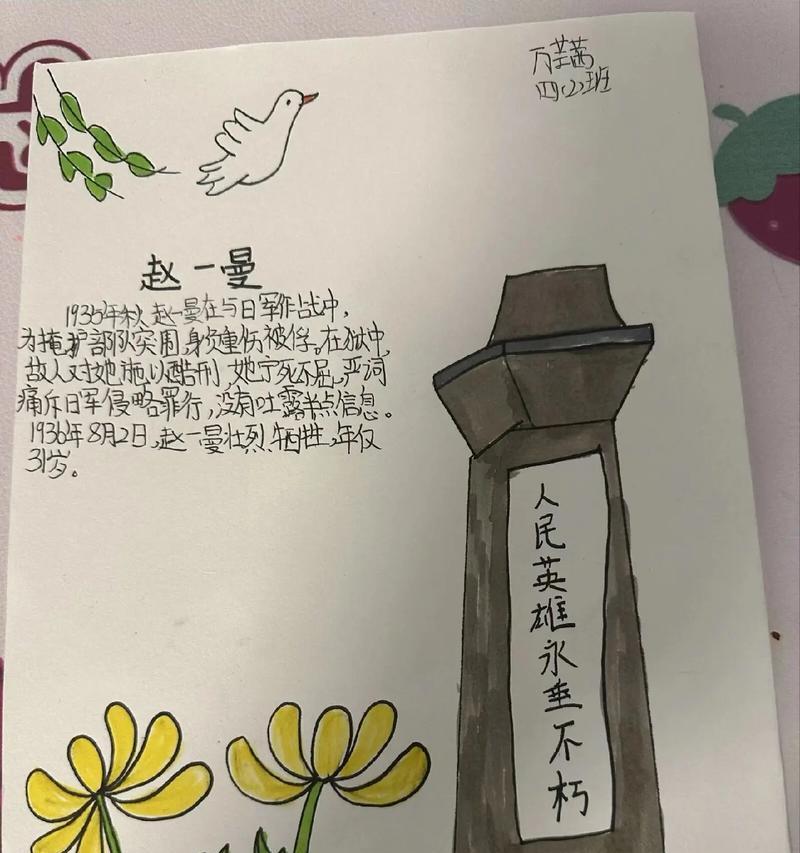 万芸茜
四(2)班
赵一曼
1935年秋,赵一曼在与日军作战中,
为掩护部队突围,身负重伤被俘。在狱中,
故人对她施以酷刑,她宁死不屈,严词
痛斥日军侵略罪行,没有吐露半点信息。
1936年8月2日,赵一曼壮烈牺牲,年仅
31岁。
人民英雄永垂不朽